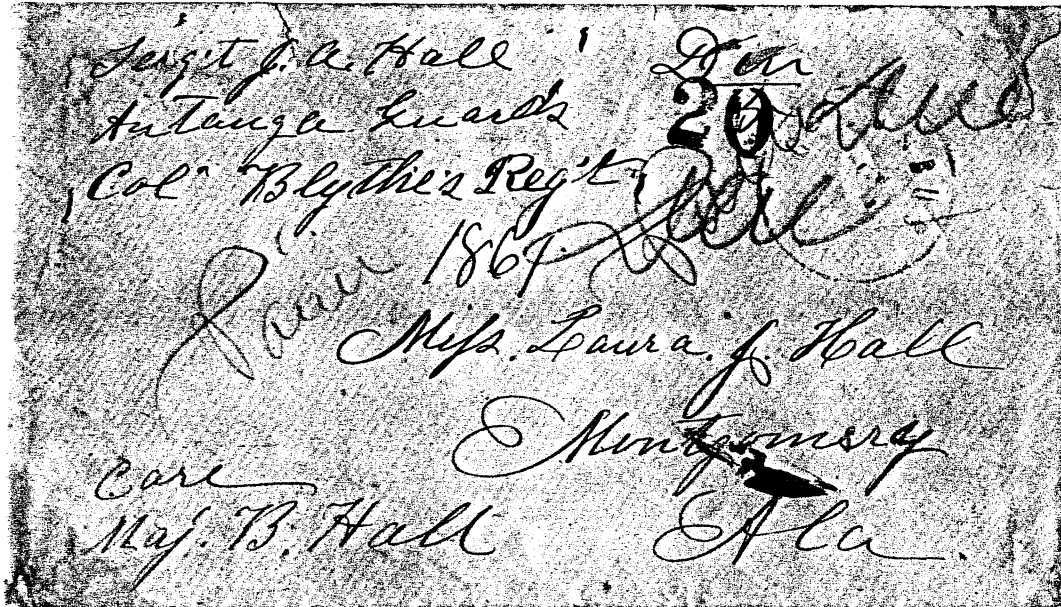 Serg't J. A. Hall
Autauga Guards
Col Blythe's Reg't
20
186
Miss. Laura. J. Hall
Montgomery
Ala.
Care
Maj. B. Hall